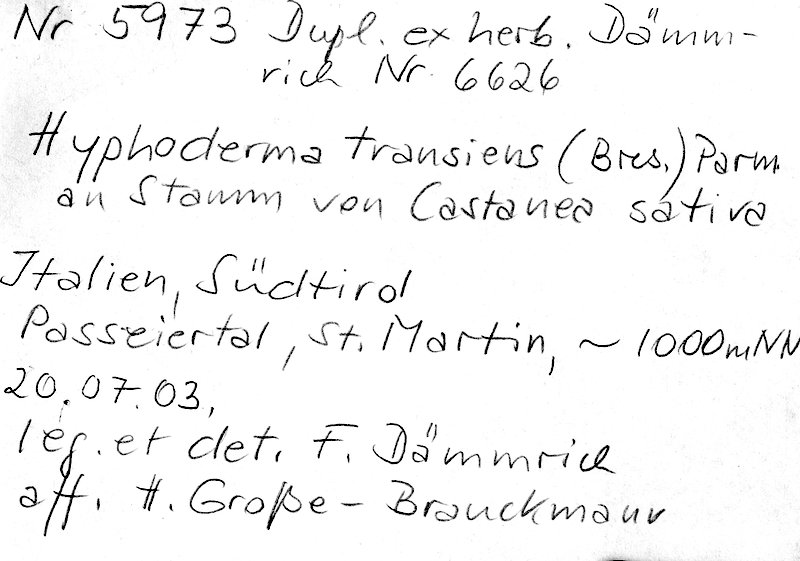 Nr 5973 Dupl. ex herb. Dämm-
rich Nr. 6626
Hyphoderma transiens (Bres.) Parm.
an Stamm von Castanea sativa
Italien, Südtirol
Passeiertal, St. Martin, ~ 1000mNN
20.07.03,
leg. et det. F. Dämmrich
aff. H. Große-Brauckmann